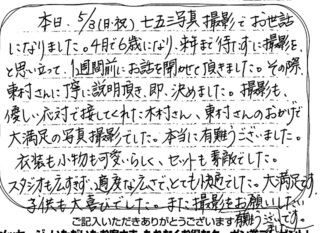 本日、5/3(日・祝)七五三写真撮影でお世話
になりました。4月で6歳になり、来年まで待てずに撮影を
と思い立って、1週間前にお話を聞かせて頂きました。その際、
東村さんに丁寧に説明頂き、即、決めました。撮影も、
優しい応対で接してくれた木村さん、東村さんのおかげで
大満足の写真撮影でした。本当に有難うございました。
衣装も小物も可愛いらしく、セットも素敵でした。
スタジオも広すぎず、適度な広さで、とても快適でした。大満足です。
子供も大喜びでした。また撮影をお願いしたい
ご記入いただきありがとうございます